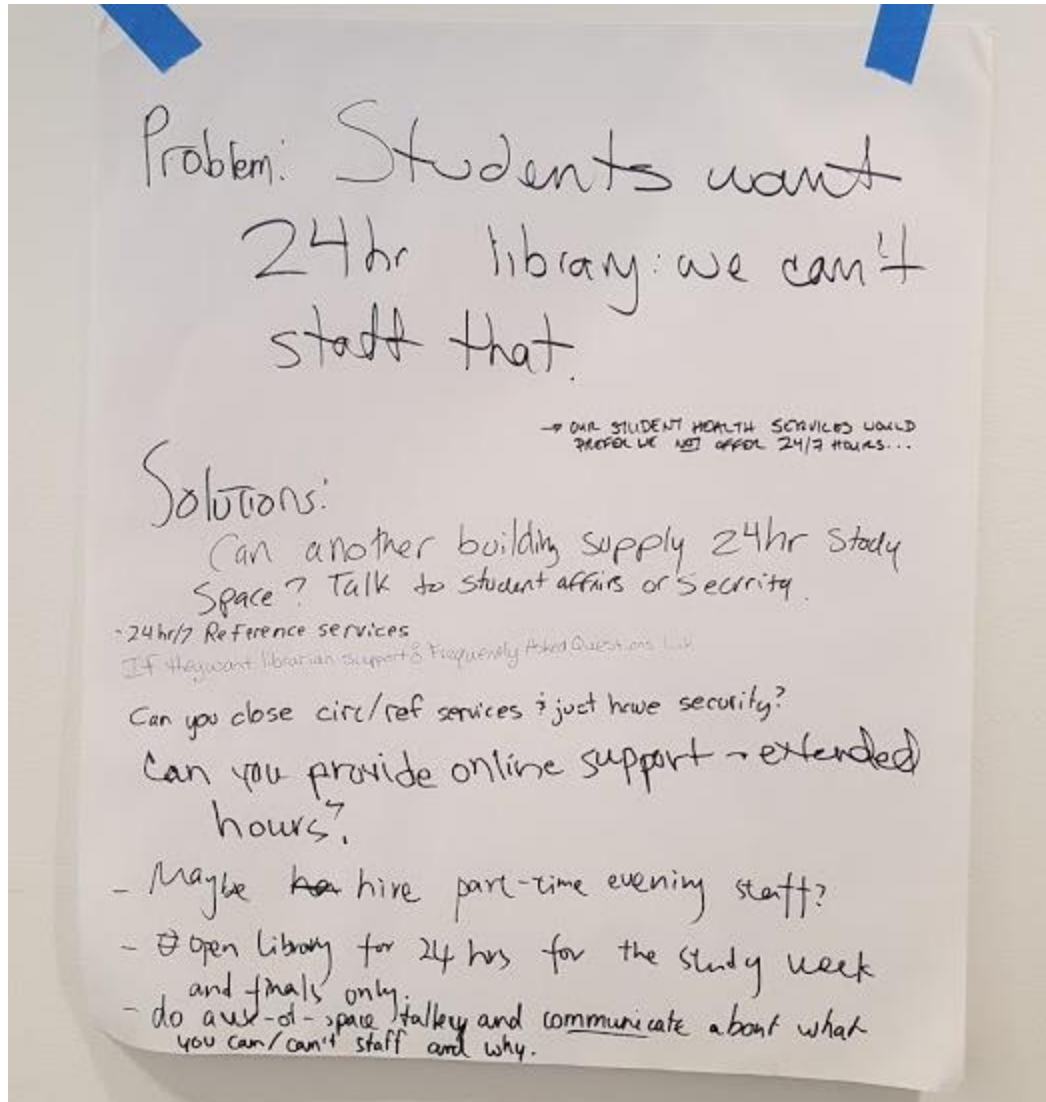 Problem: Students want
24hr library: we can't
staff that.
→ OUR STUDENT HEALTH SERVICES WOULD
PREFER WE NOT OFFER 24/7 HOURS...
Solutions:
Can another building supply 24hr Study
Space? Talk to student affairs or Security.
- 24hr/7 Reference services
If they want librarian support: Frequently Asked Questions
Can you close circ/ref services & just have security?
Can you provide online support - extended
hours?
- Maybe hire part-time evening staff?
- Open Library for 24 hrs for the study week
and finals only.
- do use-of-space and communicate about what
you can/can't staff and why.